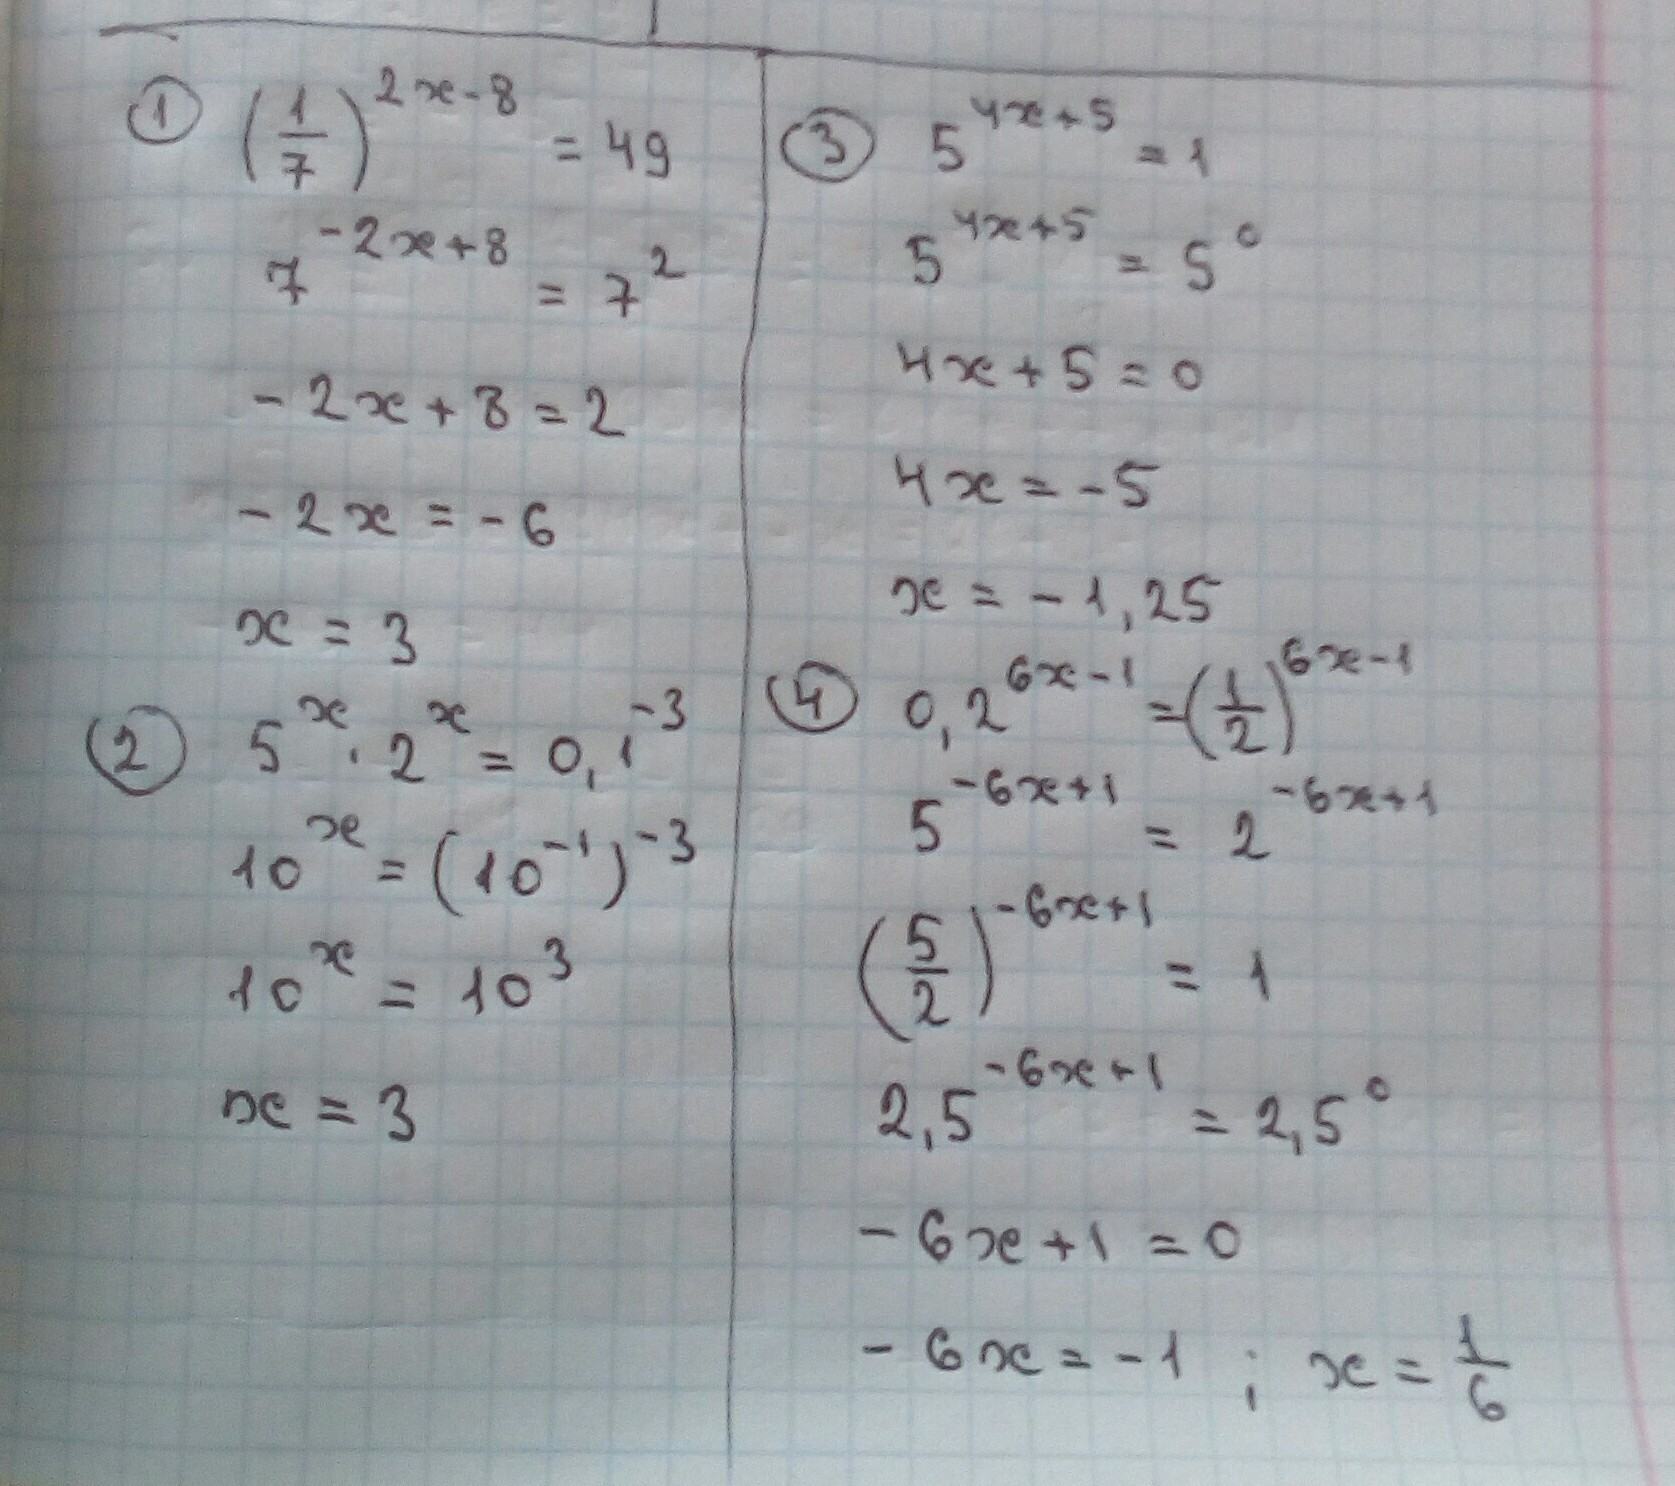 ① (1/7)^(2x-8) = 49
7^(-2x+8) = 7^2
-2x+8=2
-2x = -6
x = 3
② 5^x · 2^x = 0,1^(-3)
10^x = (10^(-1))^(-3)
10^x = 10^3
x = 3
③ 5^(4x+5) = 1
5^(4x+5) = 5^0
4x+5=0
4x = -5
x = -1,25
④ 0,2^(6x-1) = (1/2)^(6x-1)
5^(-6x+1) = 2^(-6x+1)
(5/2)^(-6x+1) = 1
2,5^(-6x+1) = 2,5^0
-6x+1 = 0
-6x = -1 ; x = 1/6